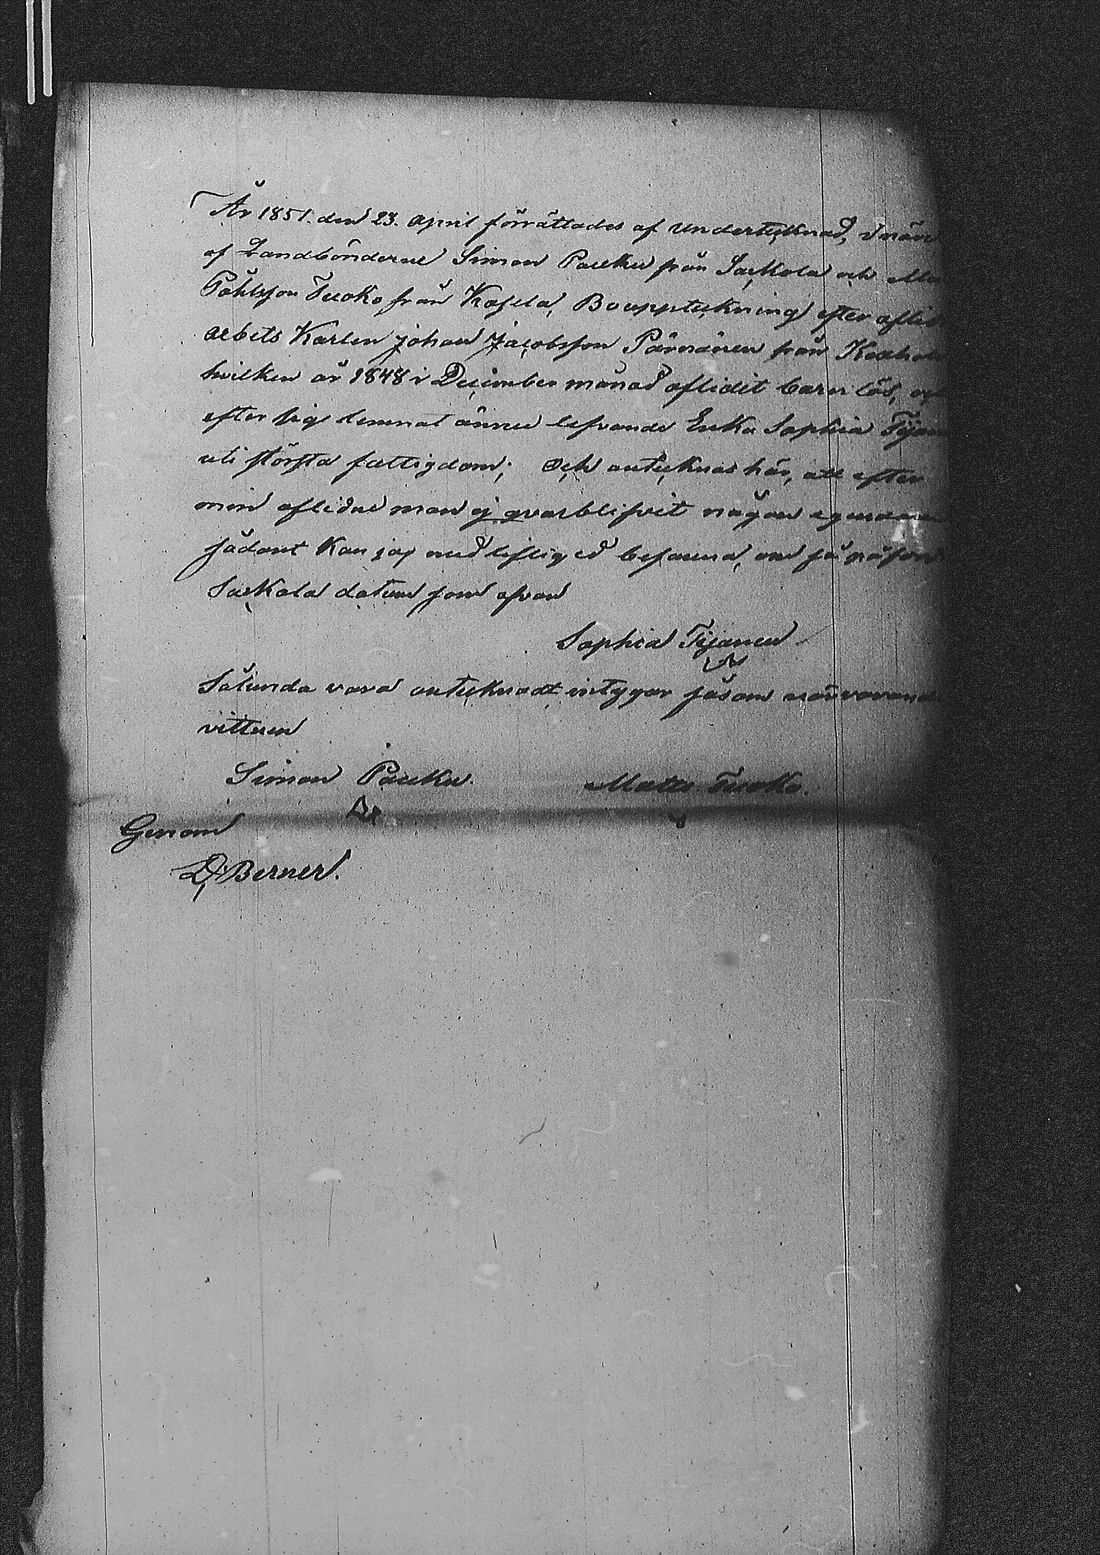 År 1851. den 23. april förrättades af undertecknad, i när
af Landbönderne Simon Paukku från Sackola och
Påhlsson Tuoko från Kosela, Bouppteckning efter aflid
arbets Karlen johan Jacobsson Pärnänen från Kexholm
hvilken år 1848 i December månad aflidit barn lös, og
efter sig lemnat ännu lefvande Enka Sophia Tijan
uti största fattigdom; och antecknas här, att efter
min aflidne man ej qvarblifvit någon egendom
sådant Kan jag med liflig ed besanna, om så påford
Sackola datum som ofvan
Sophia Tijanen
Sålunda vara antecknadt intygar såsom närvarand
vittnen
Simon Paukku. Matts Tuoko.
Genom
D. Berner.